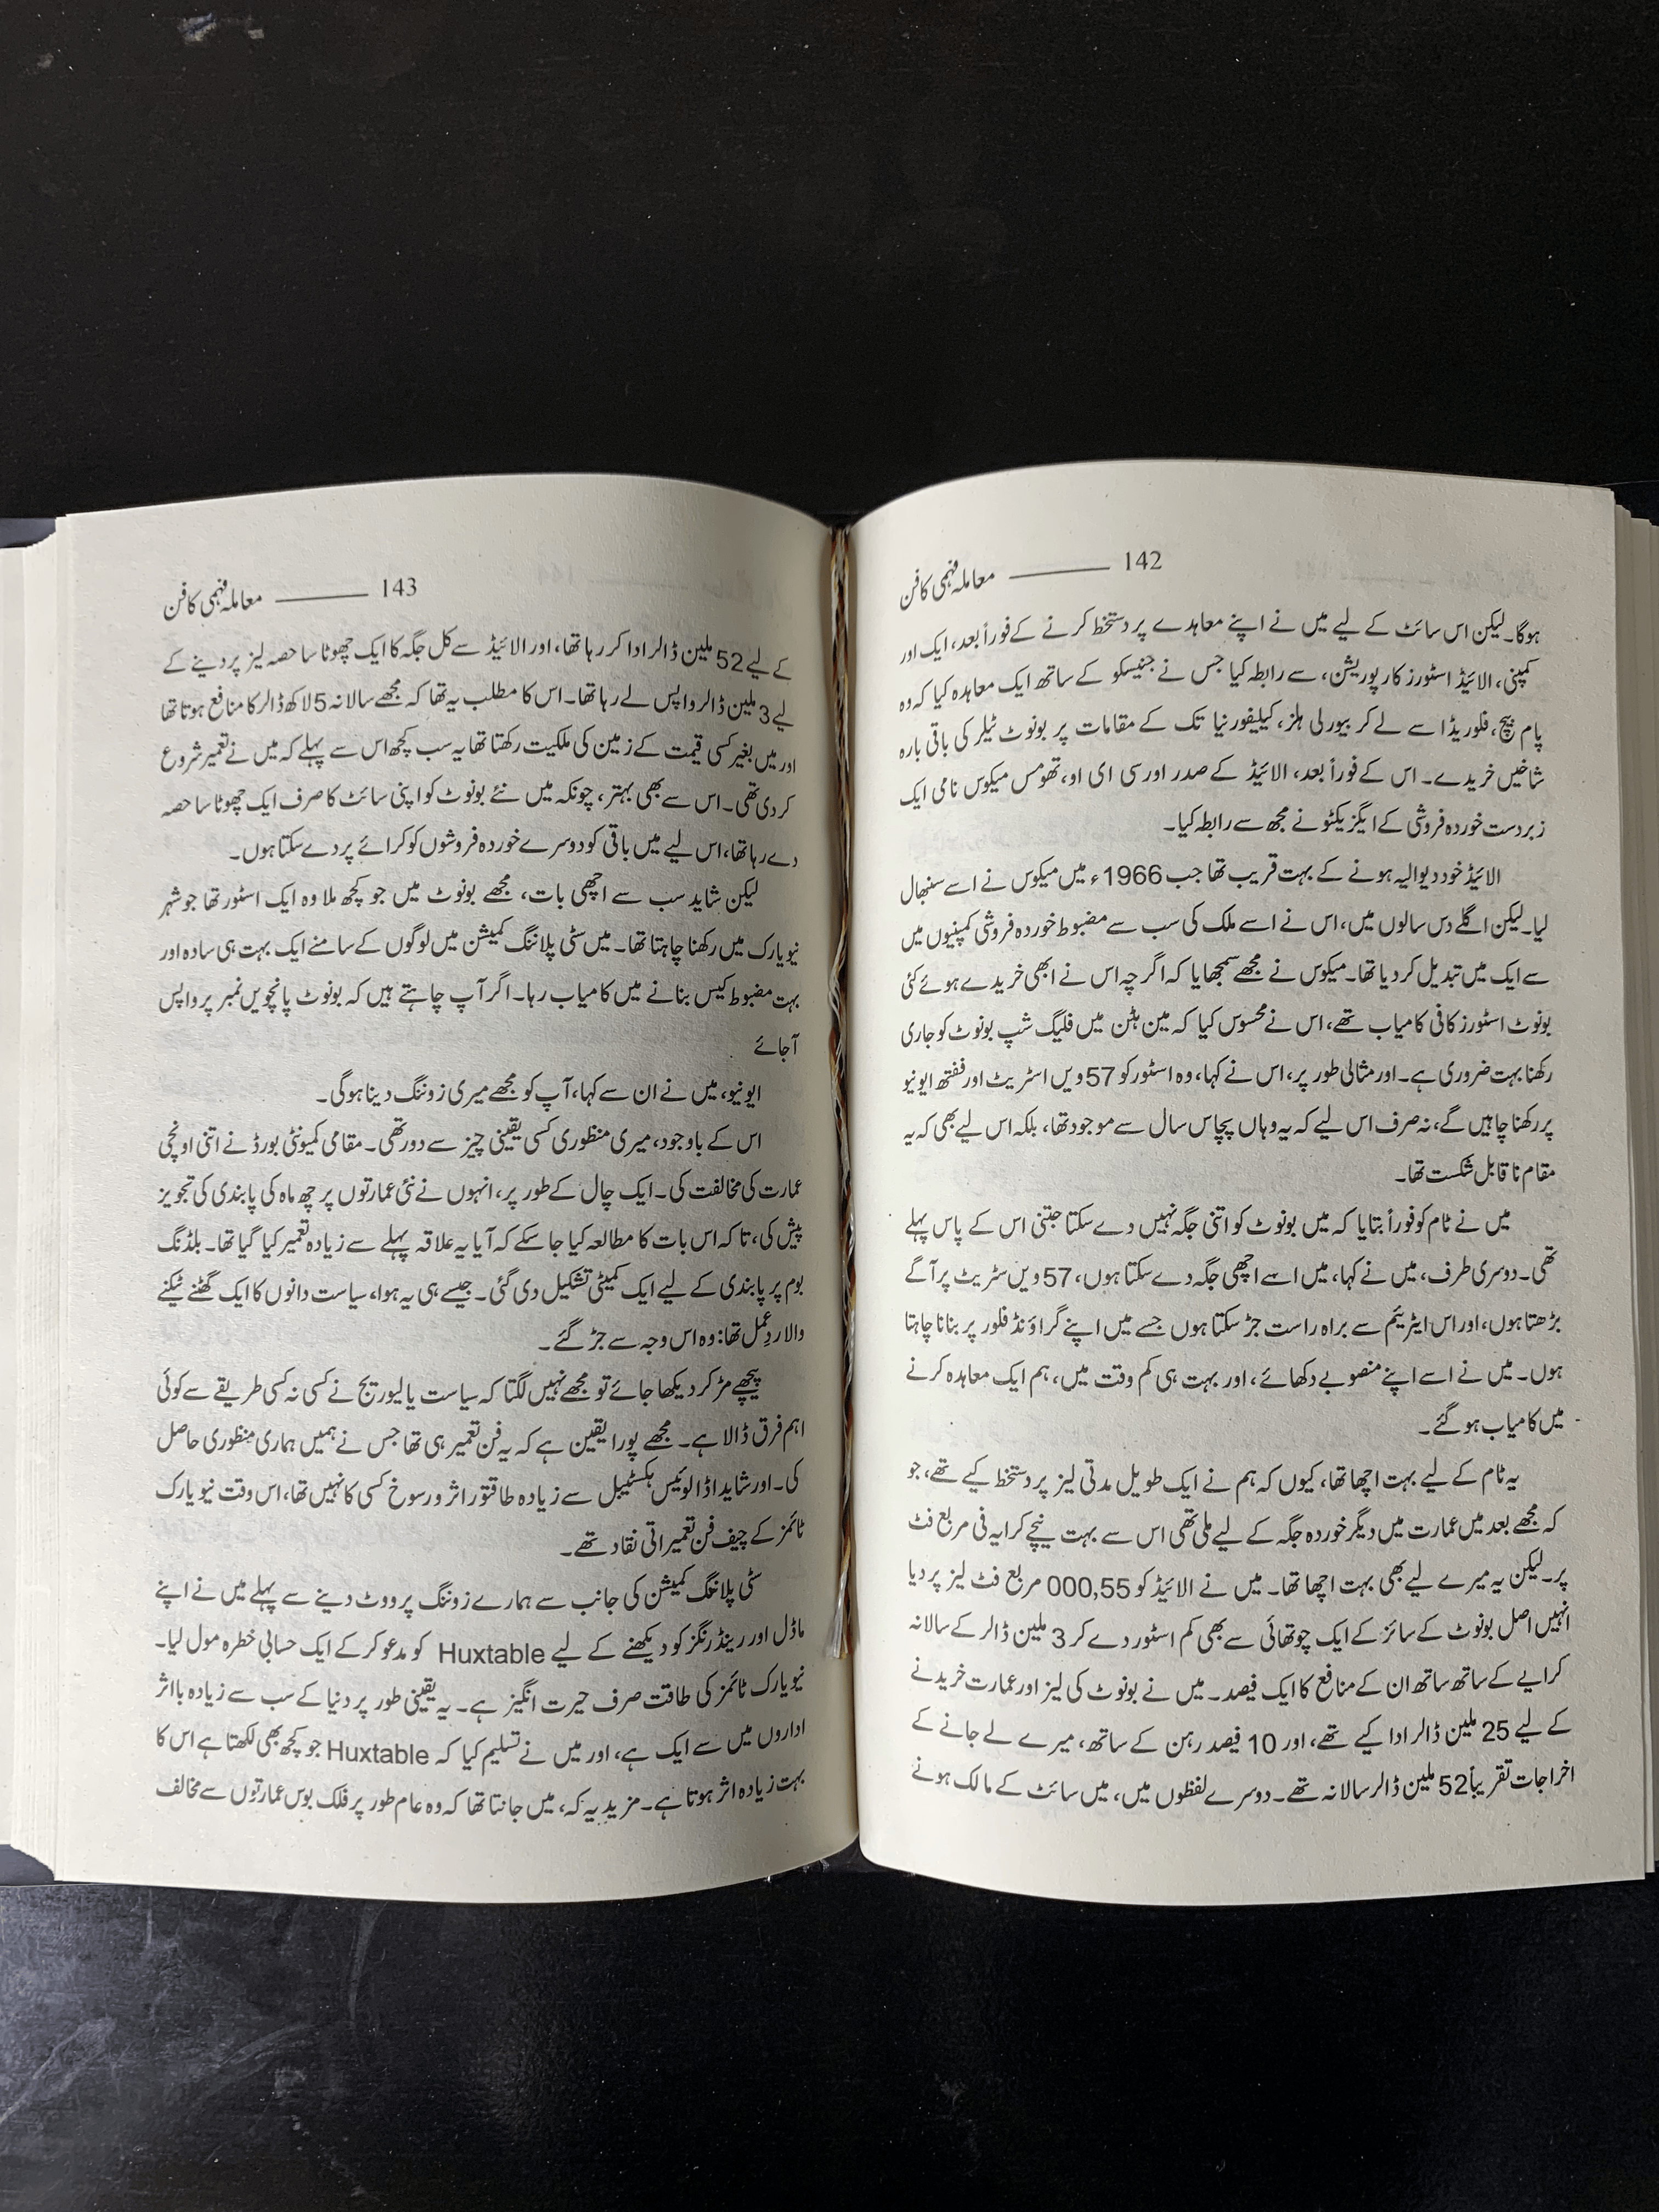 معاملہ فہمی کا فن ——— 142
ہوگا۔ لیکن اس سائٹ کے لیے میں نے اپنے معاہدے پر دستخط کرنے کے فوراً بعد، ایک اور
کمپنی، الائیڈ اسٹورز کارپوریشن، سے رابطہ کیا جس نے جنیسکو کے ساتھ ایک معاہدہ کیا کہ وہ
پام بیچ، فلوریڈا سے لے کر بیورلی ہلز، کیلیفورنیا تک کے مقامات پر بونوٹ ٹیلر کی باقی بارہ
شاخیں خریدے۔ اس کے فوراً بعد، الائیڈ کے صدر اور سی ای او، تھومس میکوس نامی ایک
زبردست خوردہ فروشی کے ایگزیکٹو نے مجھ سے رابطہ کیا۔
الائیڈ خود دیوالیہ ہونے کے بہت قریب تھا جب 1966ء میں میکوس نے اسے سنبھال
لیا۔ لیکن اگلے دس سالوں میں، اس نے اسے ملک کی سب سے مضبوط خوردہ فروشی کمپنیوں میں
سے ایک میں تبدیل کر دیا تھا۔ میکوس نے مجھے سمجھایا کہ اگرچہ اس نے ابھی خریدے ہوئے کئی
بونوٹ اسٹورز کافی کامیاب تھے، اس نے محسوس کیا کہ مین ہٹن میں فلیگ شپ بونوٹ کو جاری
رکھنا بہت ضروری ہے۔ اور مثالی طور پر، اس نے کہا، وہ اسٹور کو 57 ویں اسٹریٹ اور ففتھ ایونیو
پر رکھنا چاہیں گے، نہ صرف اس لیے کہ یہ وہاں پچاس سال سے موجود تھا، بلکہ اس لیے بھی کہ یہ
مقام ناقابل شکست تھا۔
میں نے ٹام کو فوراً بتایا کہ میں بونوٹ کو اتنی جگہ نہیں دے سکتا جتنی اس کے پاس پہلے
تھی۔ دوسری طرف، میں نے کہا، میں اسے اچھی جگہ دے سکتا ہوں، 57 ویں سٹریٹ پر آگے
بڑھتا ہوں، اور اس ایٹریئم سے براہ راست جڑ سکتا ہوں جسے میں اپنے گراؤنڈ فلور پر بنانا چاہتا
ہوں۔ میں نے اسے اپنے منصوبے دکھائے، اور بہت ہی کم وقت میں، ہم ایک معاہدہ کرنے
میں کامیاب ہو گئے۔
یہ ٹام کے لیے بہت اچھا تھا، کیوں کہ ہم نے ایک طویل مدتی لیز پر دستخط کیے تھے، جو
کہ مجھے بعد میں عمارت میں دیگر خوردہ جگہ کے لیے ملی تھی اس سے بہت نیچے کرایہ فی مربع فٹ
پر۔ لیکن یہ میرے لیے بھی بہت اچھا تھا۔ میں نے الائیڈ کو 000,55 مربع فٹ لیز پر دیا
انہیں اصل بونوٹ کے سائز کے ایک چوتھائی سے بھی کم اسٹور دے کر 3 ملین ڈالر کے سالانہ
کرایے کے ساتھ ساتھ ان کے منافع کا ایک فیصد۔ میں نے بونوٹ کی لیز اور عمارت خریدنے
کے لیے 25 ملین ڈالر ادا کیے تھے، اور 10 فیصد رہن کے ساتھ، میرے لے جانے کے
اخراجات تقریباً 52 ملین ڈالر سالانہ تھے۔ دوسرے لفظوں میں، میں سائٹ کے مالک ہونے
معاملہ فہمی کا فن ——— 143
کے لیے 52 ملین ڈالر ادا کر رہا تھا، اور الائیڈ سے کل جگہ کا ایک چھوٹا سا حصہ لیز پر دینے کے
لیے 3 ملین ڈالر واپس لے رہا تھا۔ اس کا مطلب یہ تھا کہ مجھے سالانہ 5 لاکھ ڈالر کا منافع ہوتا تھا
اور میں بغیر کسی قیمت کے زمین کی ملکیت رکھتا تھا یہ سب کچھ اس سے پہلے کہ میں نے تعمیر شروع
کر دی تھی۔ اس سے بھی بہتر، چونکہ میں نئے بونوٹ کو اپنی سائٹ کا صرف ایک چھوٹا سا حصہ
دے رہا تھا، اس لیے میں باقی کو دوسرے خوردہ فروشوں کو کرائے پر دے سکتا ہوں۔
لیکن شاید سب سے اچھی بات، مجھے بونوٹ میں جو کچھ ملا وہ ایک اسٹور تھا جو شہر
نیویارک میں رکھنا چاہتا تھا۔ میں سٹی پلاننگ کمیشن میں لوگوں کے سامنے ایک بہت ہی سادہ اور
بہت مضبوط کیس بنانے میں کامیاب رہا۔ اگر آپ چاہتے ہیں کہ بونوٹ پانچویں نمبر پر واپس
آجائے
ایونیو، میں نے ان سے کہا، آپ کو مجھے میری زوننگ دینا ہوگی۔
اس کے باوجود، میری منظوری کسی یقینی چیز سے دور تھی۔ مقامی کمیونٹی بورڈ نے اتنی اونچی
عمارت کی مخالفت کی۔ ایک چال کے طور پر، انہوں نے نئی عمارتوں پر چھ ماہ کی پابندی کی تجویز
پیش کی، تاکہ اس بات کا مطالعہ کیا جا سکے کہ آیا یہ علاقہ پہلے سے زیادہ تعمیر کیا گیا تھا۔ بلڈنگ
بوم پر پابندی کے لیے ایک کمیٹی تشکیل دی گئی۔ جیسے ہی یہ ہوا، سیاست دانوں کا ایک گھٹنے ٹیکنے
والا ردِعمل تھا: وہ اس وجہ سے جڑ گئے۔
پیچھے مڑ کر دیکھا جائے تو مجھے نہیں لگتا کہ سیاست یا لیوریج نے کسی نہ کسی طریقے سے کوئی
اہم فرق ڈالا ہے۔ مجھے پورا یقین ہے کہ یہ فن تعمیر ہی تھا جس نے ہمیں ہماری منظوری حاصل
کی۔ اور شاید اڈا لوئیس ہکسٹیبل سے زیادہ طاقتور اثر و رسوخ کسی کا نہیں تھا، اس وقت نیویارک
ٹائمز کے چیف فن تعمیراتی نقاد تھے۔
سٹی پلاننگ کمیشن کی جانب سے ہمارے زوننگ پر ووٹ دینے سے پہلے میں نے اپنے
ماڈل اور رینڈرنگز کو دیکھنے کے لیے Huxtable کو مدعو کر کے ایک حسابی خطرہ مول لیا۔
نیویارک ٹائمز کی طاقت صرف حیرت انگیز ہے۔ یہ یقینی طور پر دنیا کے سب سے زیادہ بااثر
اداروں میں سے ایک ہے، اور میں نے تسلیم کیا کہ Huxtable جو کچھ بھی لکھتا ہے اس کا
بہت زیادہ اثر ہوتا ہے۔ مزید یہ کہ، میں جانتا تھا کہ وہ عام طور پر فلک بوس عمارتوں سے مخالف